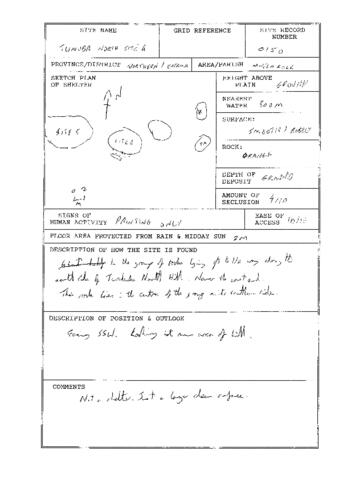 SITE NAME GRID REFERENCE SITE RECORD NUMBER
TUMUBA NORTH SITE 6 0150
PROVINCE/DISTRICT NORTHERN / KASAMA AREA/PARISH
SKETCH PLAN OF SHELTER
HEIGHT ABOVE PLAIN GROUND
N
NEAREST WATER 800m
SURFACE:
SITE 5
SITE 6
SMOOTH / ROUGH
ROCK:
ORANGE
DEPTH OF DEPOSIT GROUND
0 2
AMOUNT OF SECLUSION 4/10
SIGNS OF HUMAN ACTIVITY PAINTING ONLY EASE OF ACCESS 10/10
FLOOR AREA PROTECTED FROM RAIN & MIDDAY SUN 2m
DESCRIPTION OF HOW THE SITE IS FOUND
In the group of rocks lying of the way along the
south side of North Hill. Near the east end.
This rock lies in the centre of the group on its southern side.
DESCRIPTION OF POSITION & OUTLOOK
Facing SSW. Looking out over area of hill.
COMMENTS
Not a shelter. Just a large clean surface.